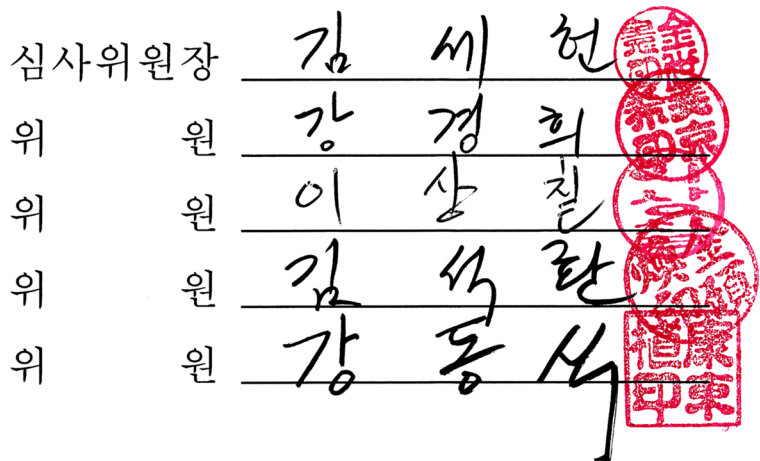 심사위원장 김 세 헌
위 원 강 경 희
위 원 이 상
위 원 김 석 란
위 원 강 동 석